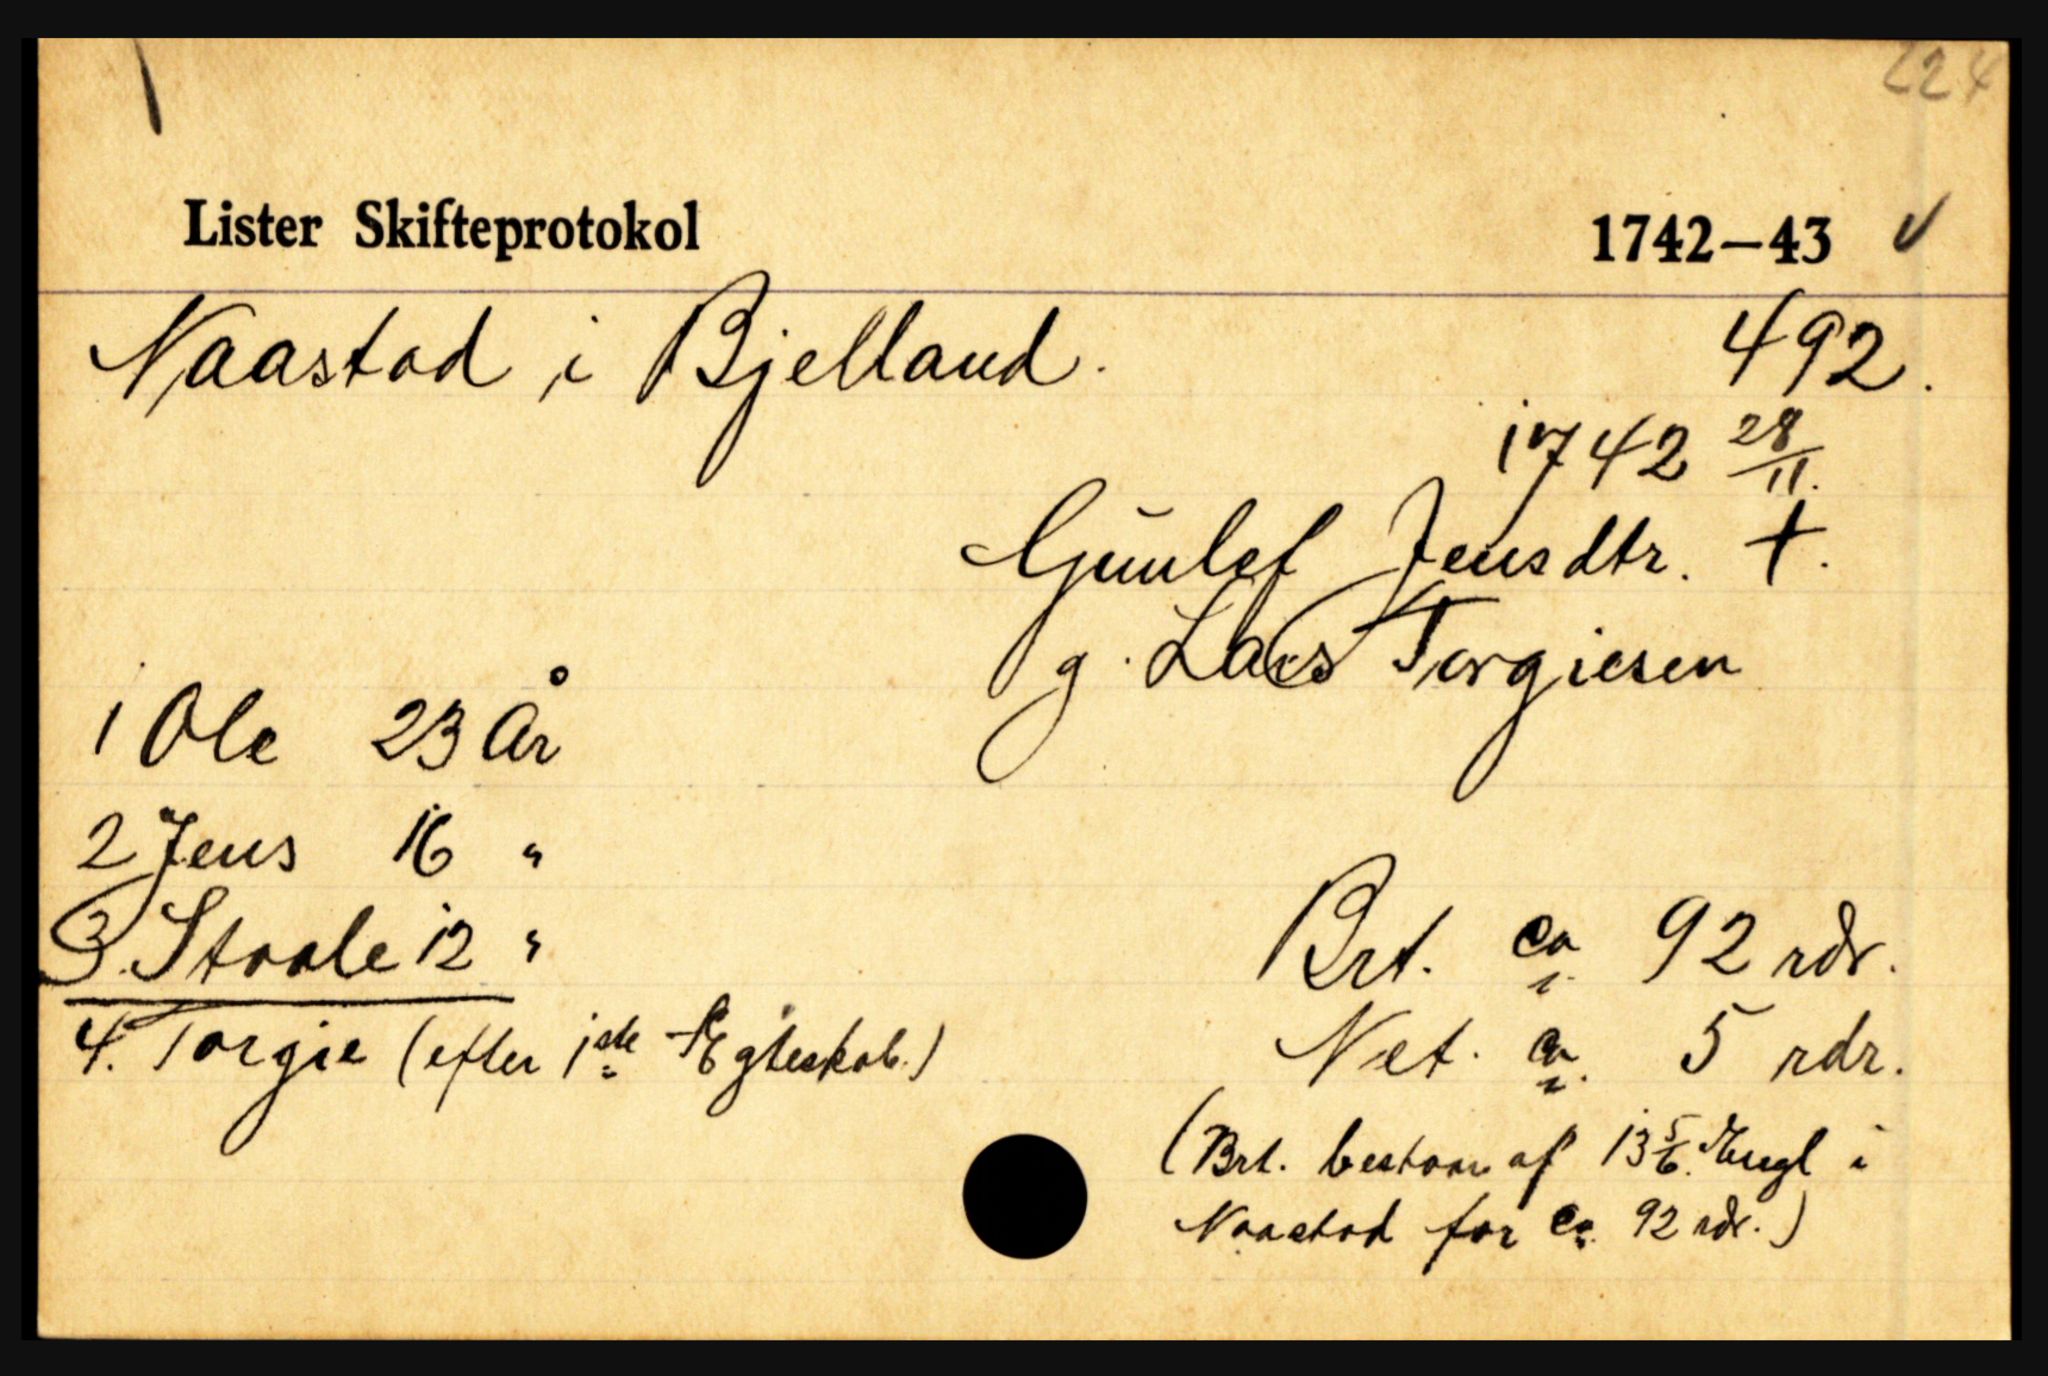 224
Lister Skifteprotokol 1742–43
Naastad i Bjelland. 492.
1742 28/11.
Gunlef Jensdtr. †.
g. Lars Torgiesen
1 Ole 23 År
2 Jens 16 "
3. Staale 12 "
4. Torgie (efter 1ste Ægteskab.)
Brt. ca. 92 rdr.
Net. ca. 5 rdr.
(Brt. bestaar af 13 5/6 Engl i
Naastad for ca. 92 rdr.)